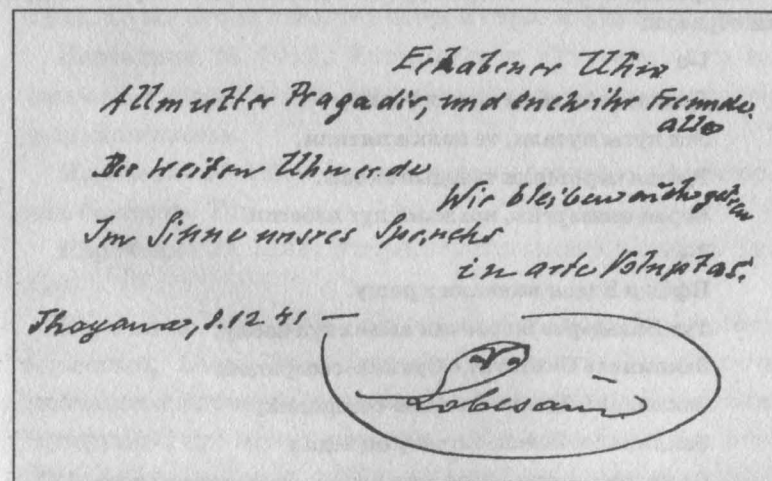 Erhabener Uhu
Allmutter Pragadir, und euch ihr Freunde
alle
Der weiten Uhuerde
Wir bleiben euch getreu
Im Sinne unsres Spruchs
in arte Voluptas!
8.12.41
Lobesam